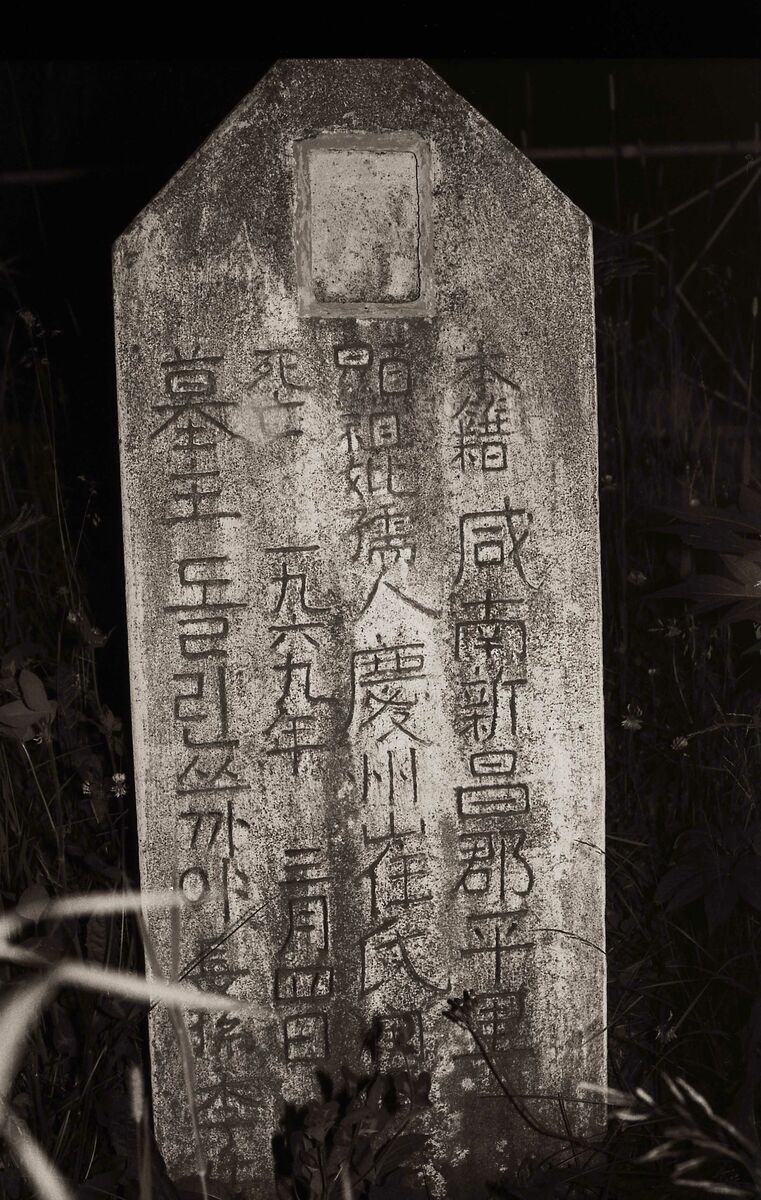 本籍 咸南新昌郡平里
祖妣孺人慶州崔氏
死亡 一九六九年 三月四日
墓主 돌린쓰까야 長孫 李